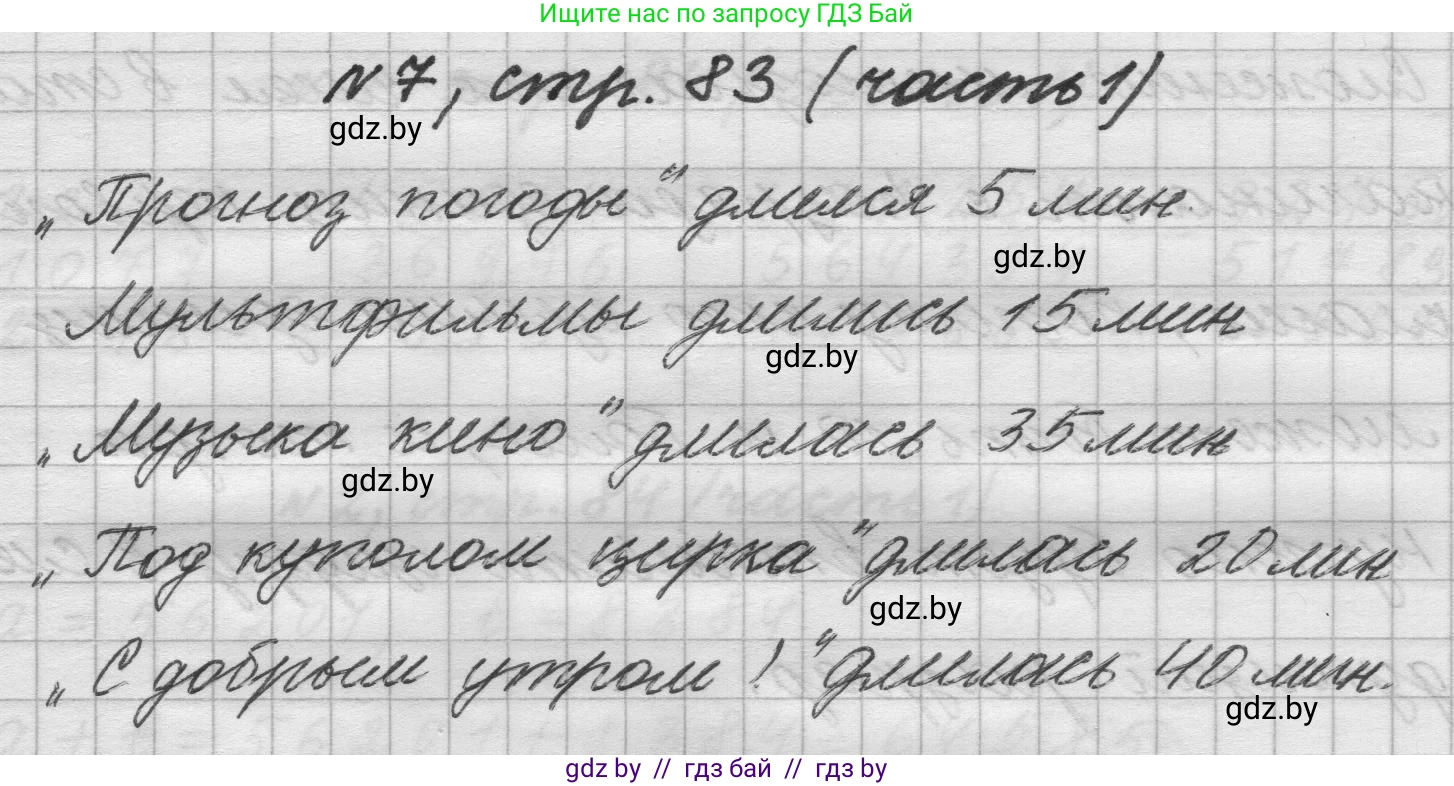 Ищите нас по запросу ГДЗ Бай
№ 7, стр. 83 (часть 1)
gdz.by
„Прогноз погоды" длился 5 мин.
gdz.by
Мультфильмы длились 15 мин
gdz.by
„Музыка кино" длилась 35 мин
gdz.by
„Под куполом цирка" длилась 20 мин
gdz.by
„С добрым утром!" длилась 40 мин.
gdz.by
gdz by // гдз бай // гдз by